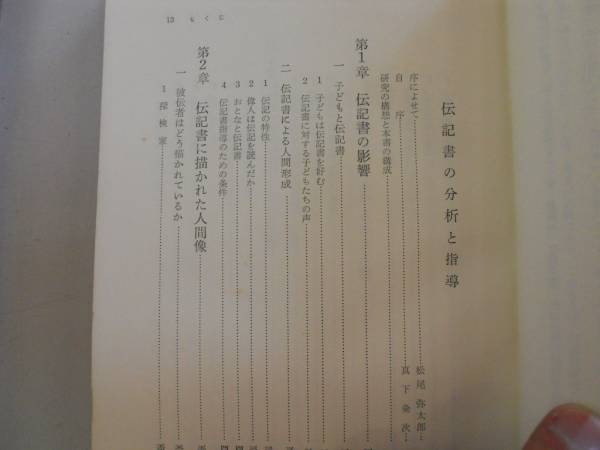 伝記書の分析と指導
序によせて 松尾弥太郎
自序 真下
研究の構想と本書の構成
第1章 伝記書の影響
一 子どもと伝記書
1 子どもは伝記書を好む
2 伝記書に対する子どもたちの声
二 伝記書による人間形成
1 伝記の特性
2 偉人は伝記を読んだか
3 おとなと伝記書
4 伝記書指導のための条件
第2章 伝記書に描かれた人間像
一 被伝者はどう描かれているか
1 探検家
13 もくじ